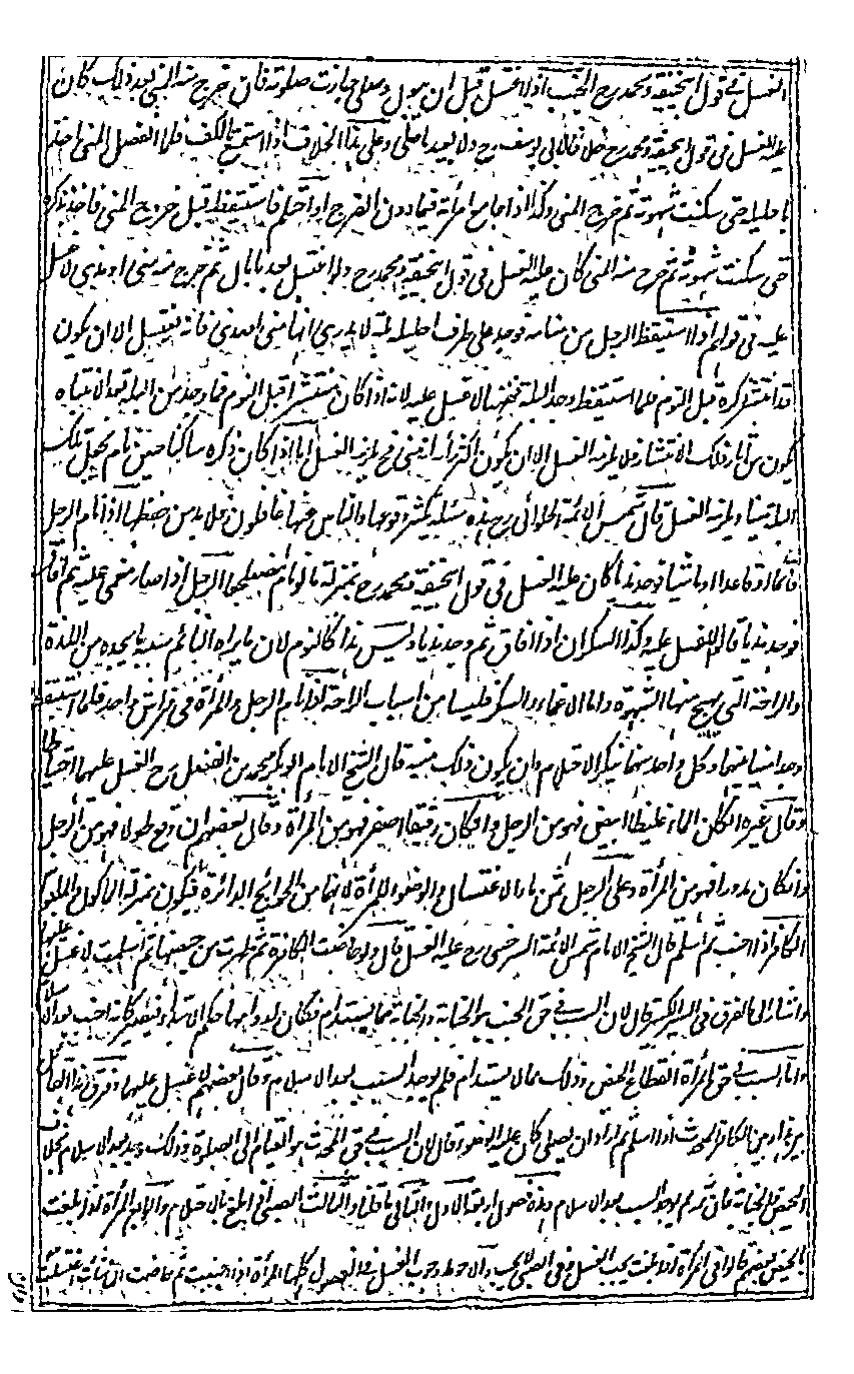 الغسل في قول ابي حنيفة ومحمد رح الجنب اذا اغتسل قبل ان يبول وصلى جازت صلوته فان خرج منه المني بعد ذلك كان
عليه الغسل في قول ابي حنيفة ومحمد رح خلافا لابي يوسف رح ولا يعيد ما صلى وعلى هذا الخلاف اذا استمنى بالكف فلما انفصل المني اخذ
باحليله حتى سكنت شهوته ثم خرج المني وكذا اذا جامع امرأته فيما دون الفرج او احتلم فاستيقظ قبل خروج المني فاخذ ذكره
حتى سكنت شهوته ثم خرج منه المني كان عليه الغسل في قول ابي حنيفة ومحمد رح ولو اغتسل بعد ما بال ثم خرج منه مني او مذي لا غسل
عليه في قولهم اذا استيقظ الرجل من منامه فوجد على طرف احليله بلة لا يدري انها مني او مذي فانه يغتسل الا ان يكون
قد انتشر ذكره قبل النوم فلما استيقظ وجد البلة فحينئذ لا غسل عليه لانه اذا كان منتشرا قبل النوم فما وجد من البلة بعد الانتباه
يكون من آثار ذلك الانتشار فلا يلزمه الغسل الا ان يكون اكبر رأيه انه مني فح يلزمه الغسل اما اذا كان ذكره ساكنا حين نام يجعل تلك
البلة منيا ويلزمه الغسل قال شمس الائمة الحلوائي رح هذه مسئلة يكثر وقوعها والناس عنها غافلون فلا بد من حفظها اذا نام الرجل
قائما او قاعدا او ماشيا فوجد مذيا كان عليه الغسل في قول ابي حنيفة ومحمد رح بمنزلة ما لو نام مضطجعا الرجل اذا صار مغمى عليه ثم افاق
فوجد مذيا قالوا لا غسل عليه وكذا السكران اذا افاق ثم وجد مذيا وليس هذا كالنوم لان ما يراه النائم سببه ما يجده من اللذة
والراحة التي يهيج منها الشهوة واما الاغماء والسكر فليسا من اسباب الراحة اذا نام الرجل والمرأة في فراش واحد فلما استيقظا
وجدا منيا بينهما وكل واحد منهما ينكر الاحتلام وان يكون ذلك منيه قال الشيخ الامام ابو بكر محمد بن الفضل رح الغسل عليهما احتياطا
وقال غيره ان كان الماء غليظا ابيض فهو من الرجل وان كان رقيقا اصفر فهو من المرأة وقال بعضهم ان وقع طولا فهو من الرجل
وان كان مدورا فهو من المرأة وعلى الرجل ثمن ماء الاغتسال والوضوء للمرأة لانهما من الحوائج الدائرة فيكون بمنزلة المأكول والملبوس
الكافر اذا اجنب ثم اسلم قال الشيخ الامام شمس الائمة السرخسي رح عليه الغسل قال ولو حاضت الكافرة ثم طهرت من حيضها ثم اسلمت لا غسل عليها
واشار الى الفرق في السير الكبير قال لان السبب في حق الجنب هو الجنابة والجنابة مما يستدام فكان لدوامها حكم الابتداء فيصير كانه اجنب بعد الاسلام
واما السبب في حق المرأة انقطاع الحيض وذلك مما لا يستدام فلم يوجد السبب بعد الاسلام وقال بعضهم لا غسل عليهما وفرق هذا القائل
بين هذا وبين الكافر المحدث اذا اسلم ثم اراد ان يصلي كان عليه الوضوء قال لان السبب في حق المحدث هو القيام الى الصلوة وذلك وجد بعد الاسلام بخلاف
الحيض والجنابة فان ثم لم يوجد السبب بعد الاسلام وهذه فصول اربعة الاول والثاني ما قلنا والثالث الصبي اذا بلغ بالاحتلام والرابع المرأة اذا بلغت
بالحيض بعضهم قالوا في المرأة اذا بلغت يجب الغسل وفي الصبي لا يجب والاحوط وجوب الغسل في الفصول كلها المرأة اذا اجنبت ثم حاضت ان شاءت اغتسلت